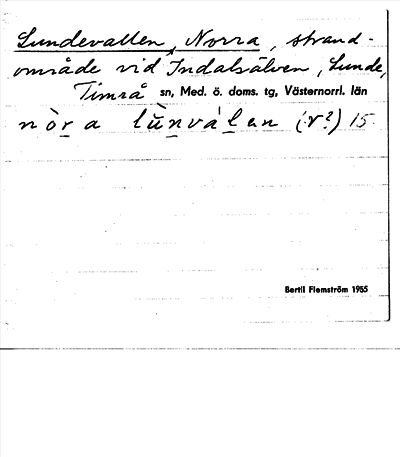 Lundevallen, Norra, strand-
område vid Indalsälven, Lunde,
Timrå sn, Med. ö. doms. tg, Västernorrl. län
nòr̲a lùn̲vál̲an (r̲?) 15.
Bertil Flemström 1955